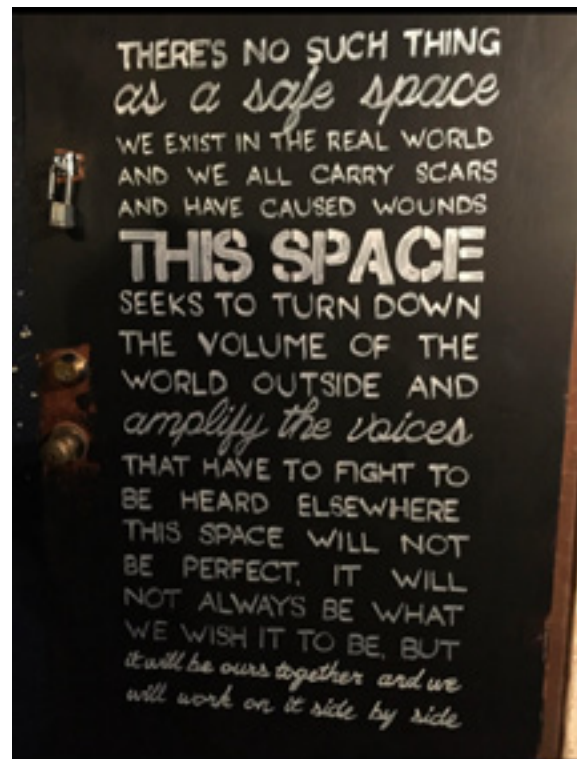 THERE'S NO SUCH THING
as a safe space
WE EXIST IN THE REAL WORLD
AND WE ALL CARRY SCARS
AND HAVE CAUSED WOUNDS
THIS SPACE
SEEKS TO TURN DOWN
THE VOLUME OF THE
WORLD OUTSIDE AND
amplify the voices
THAT HAVE TO FIGHT TO
BE HEARD ELSEWHERE
THIS SPACE WILL NOT
BE PERFECT. IT WILL
NOT ALWAYS BE WHAT
WE WISH IT TO BE, BUT
it will be ours together and we
will work on it side by side